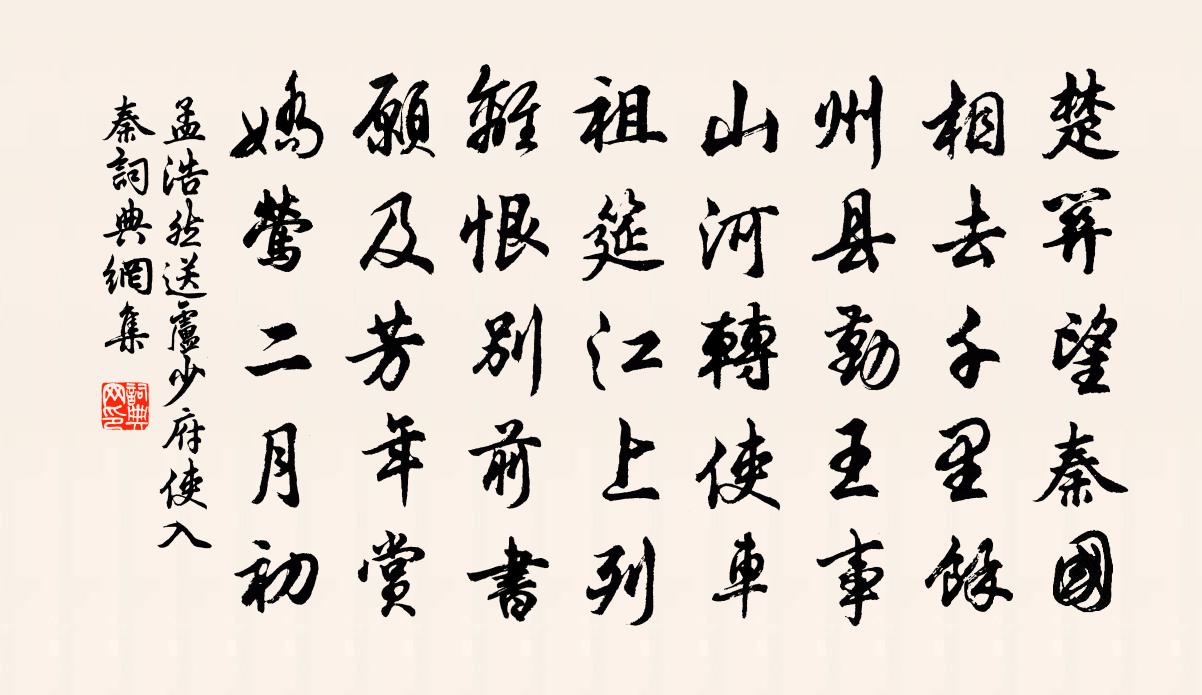 楚關望秦國
相去千里餘
州县勤王事
山河轉使車
祖筵江上列
離恨別前書
願及芳年賞
嬌鶯二月初
孟浩然送盧少府使入
秦詞典網集
詞典
网印